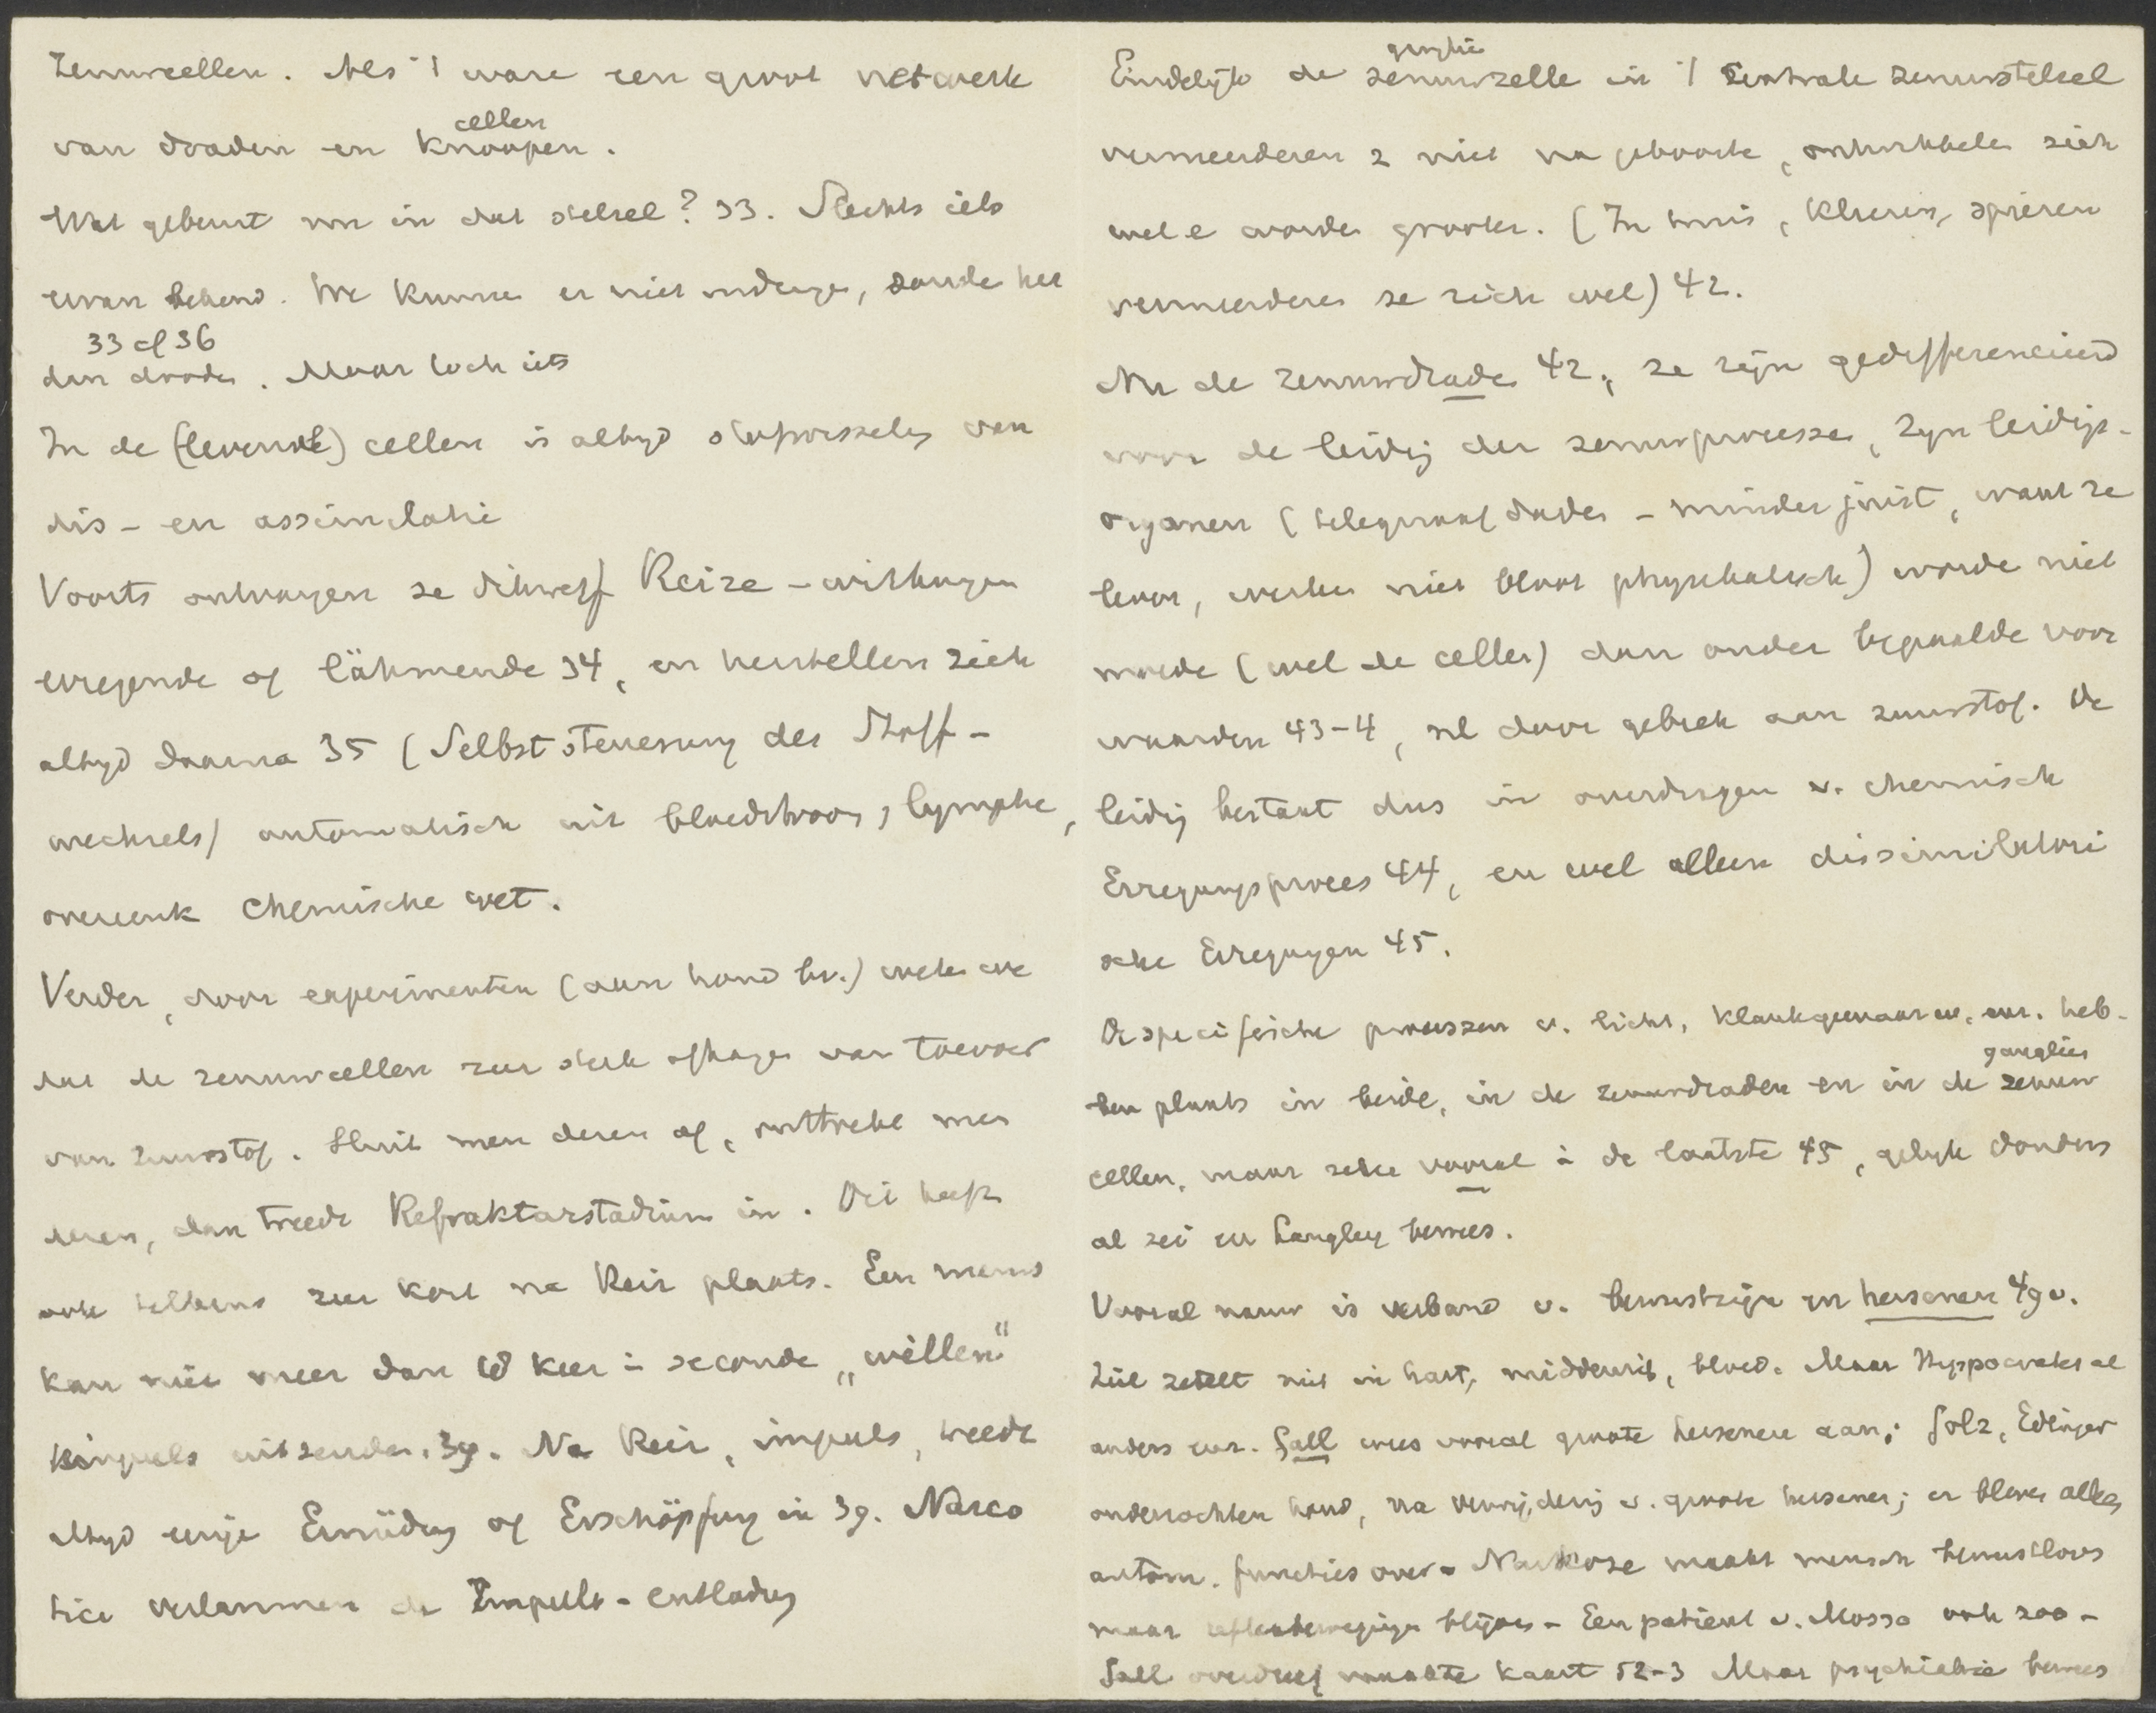 Zenuwcellen. Als 't ware een groot netwerk
cellen
van draden en knoopen.
Wat gebeurt nu in dat stelsel? 33. Slechts iets
ervan bekend. We kunne er niet indringe, zonde het
33 of 36
dan doode. Maar toch iets
In de (levende) cellen is altyd stofwisseling van
dis- en assimilatie
Voorts ontvangen ze dikwerf Reize-wirkungen
erregende of lähmende 34, en herstellen zich
altyd daarna 35 (Selbststeuerung des Stoff-
wechsels) automatisch uit bloedstroom, lymphe,
overeenk chemische wet.
Verder, door experimenten (aan hond bv.) weten we
dat de zenuwcellen zeer sterk afhange van toevoer
van zuurstof. Sluit men deze af, onttrekt men
deze, dan treedt Refraktärstadium in. Dit heeft
ook telkens zeer kort na Reiz plaats. Een mens
kan niet meer dan 10 keer in seconde „willen"
impuls uitzenden. 39. Na Reiz, impuls, treedt
altyd enige Ermüdung of Erschöpfung in 39. Narco
tica verlammen de Impuls-entladung
ganglie
Eindelyk de zenuwzelle in 't Centrale zenuwstelsel
vermeerderen z niet na geboorte, ontwikkele zich
wel e worde grooter. (In huis, klieren, spieren
vermeerdere ze zich wel) 42.
Nu de zenuwdrade 42, ze zijn gedifferencieerd
voor de leidig der zenuwprocesse, zyn leidigs-
organen (telegraafdrade - minder juist, want ze
leven, werken niet bloot physikalisch) worde niet
moede (wel de celle) dan onder bepaalde voor
waarden 43-4, nl door gebrek aan zuurstof. De
leidig bestaat dus in overdragen v. chemisch
Erregungsproces 44, en wel alleen dissimilatori
sche Erregungen 45.
De specifieke processen v. licht, klankgewaarw. enz. heb-
ganglien
ben plaats in beide, in de zenuwdraden en in de zenuw
cellen, maar zeker vooral in de laatste 45, gelyk Donders
al zei en Langley bewees.
Vooral nauw is verband v. bewustzijn en hersenen 49 v.
Ziel zetelt niet in hart, middenrif, bloed. Maar Hyppocrates al
anders enz. Gall wees vooral groote hersenen aan; Golz, Edinger
onderzochten hond, na verwijdering v. groote hersenen; er bleven alle
autom. functies over. Narkose maakt mensch bewustloos
maar reflexbewegingen blijven - Een patient v. Mosso ook zoo -
Gall overdreef maakte kaart 52-3 Maar psychiatrie bewees